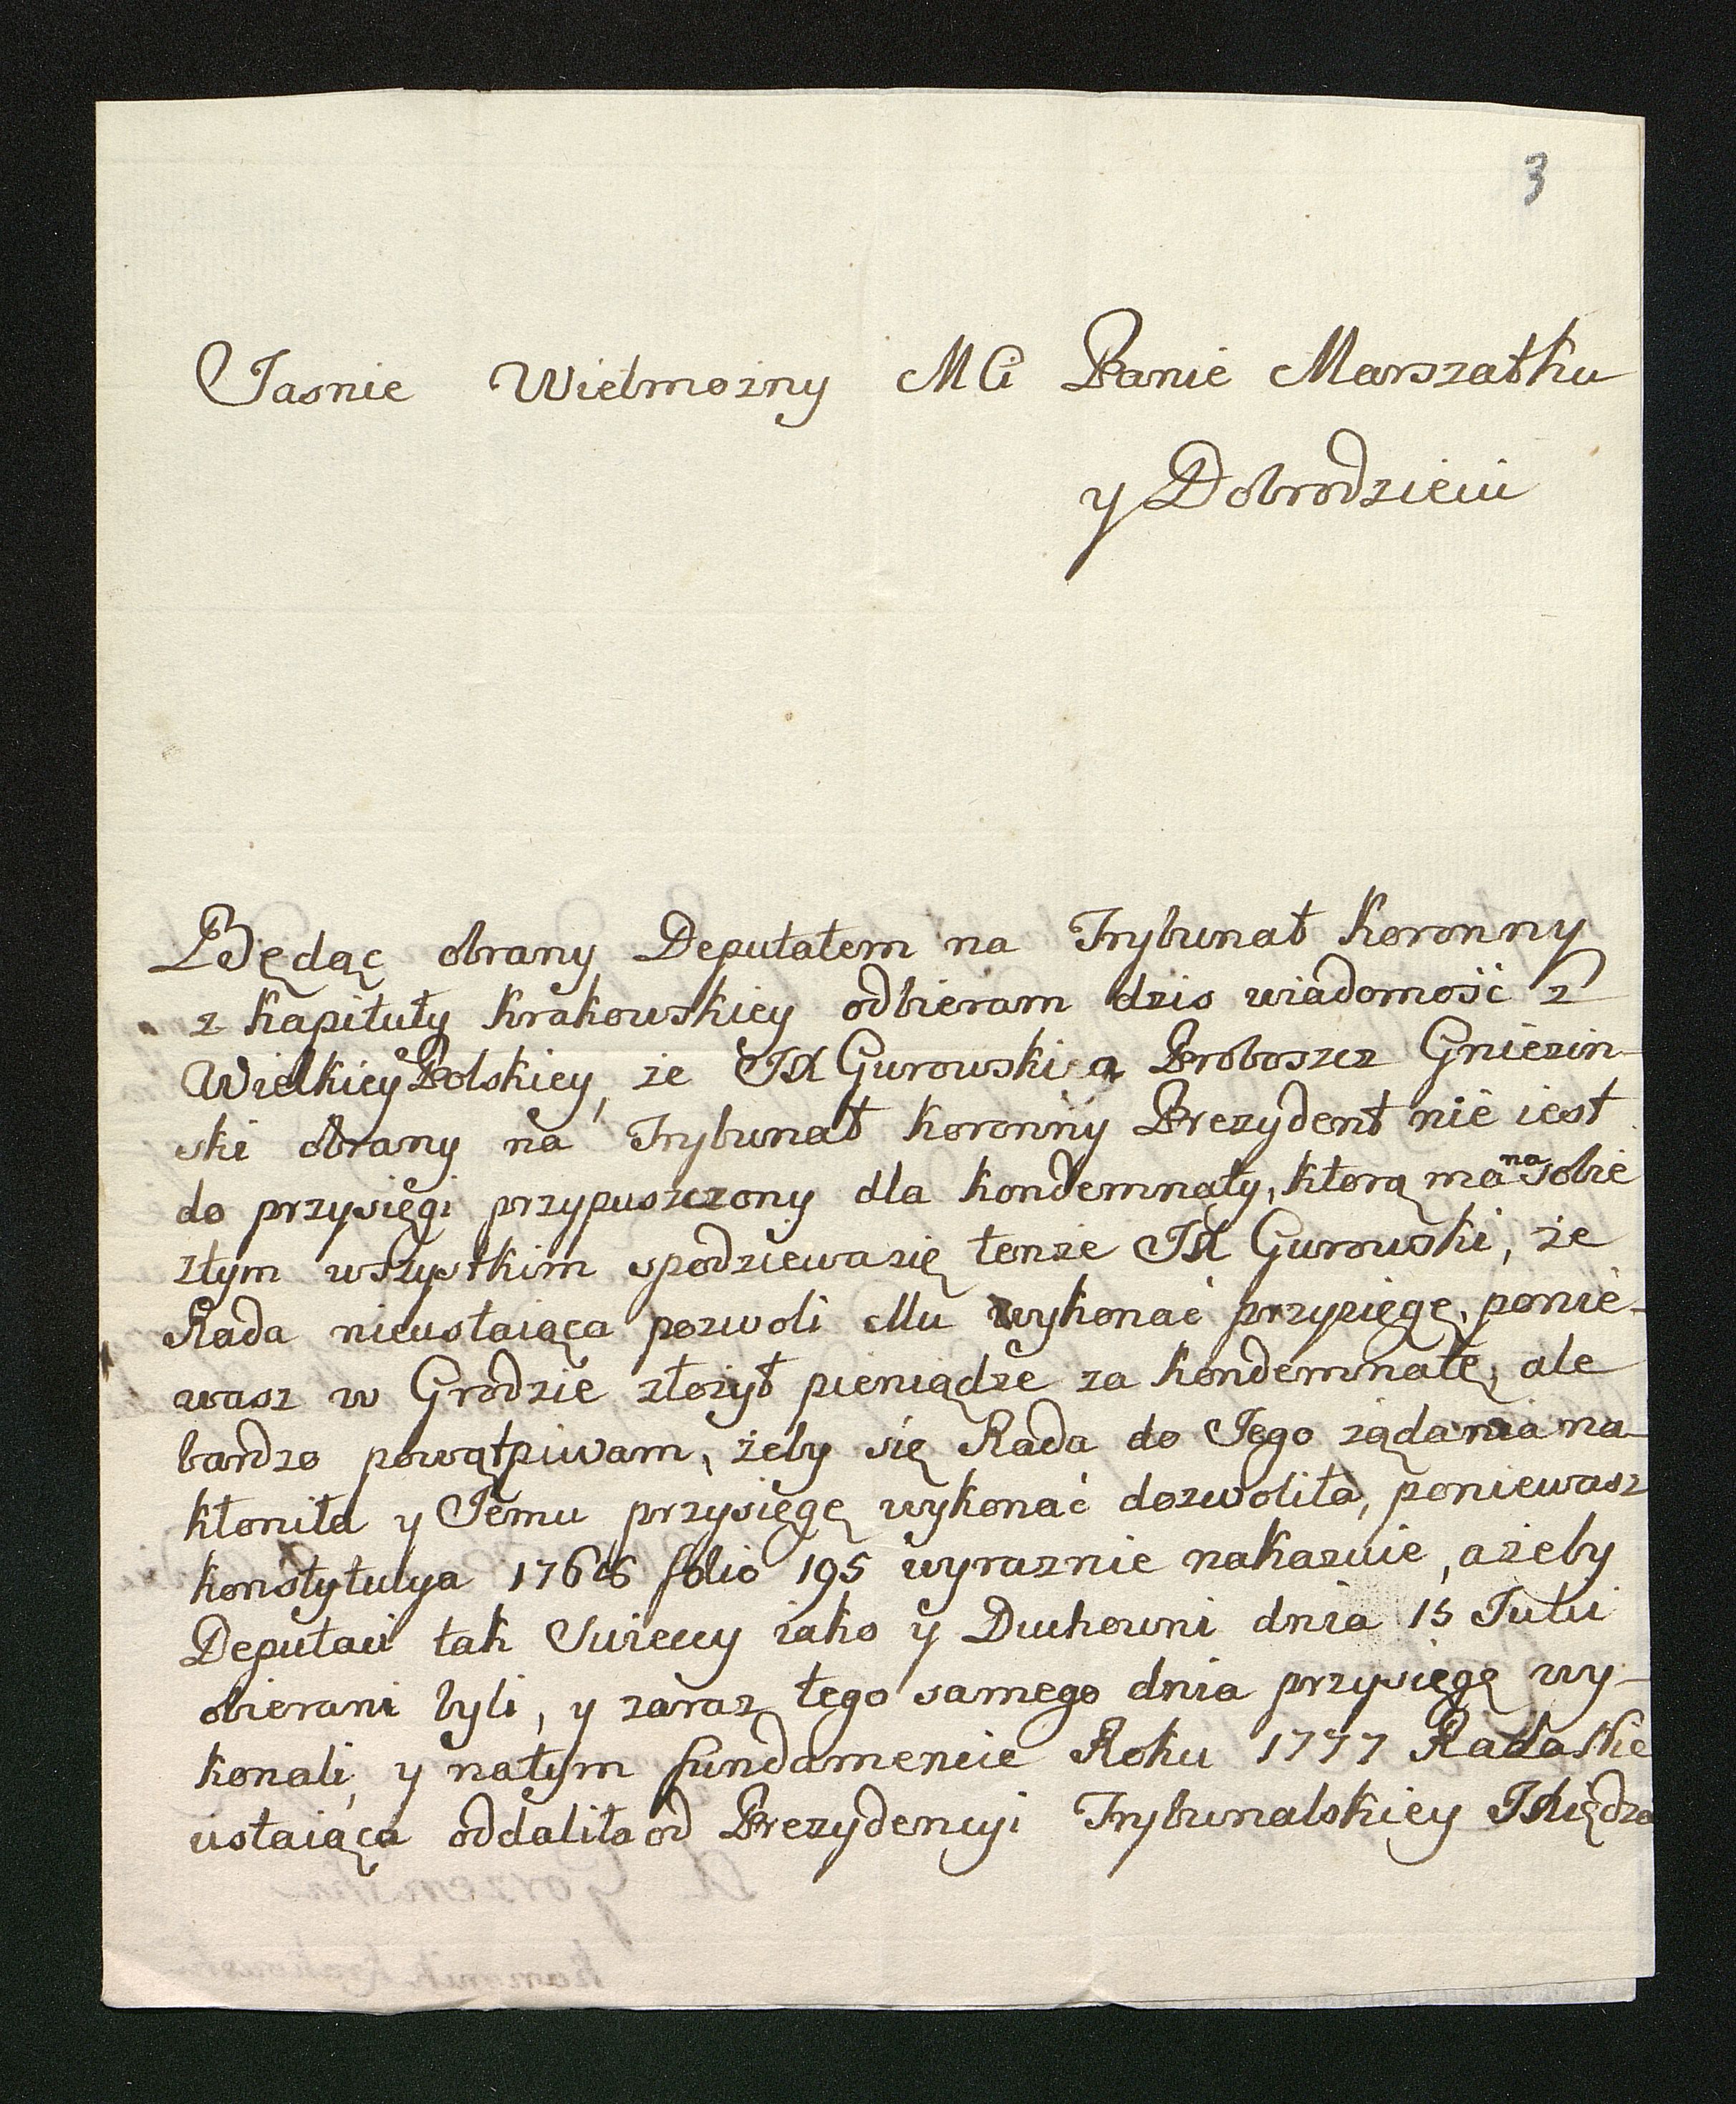 3
Jasnie Wielmożny MCi Panie Marszałku
y Dobrodzieiu
Będąc obrany Deputatem na Trybunał Koronny
z Kapituły Krakowskiey odbieram dzis wiadomość z
Wielkiey Polskiey, że JX Gurowski Proboszcz Gniezin-
ski obrany na Trybunał Koronny Prezydent nie iest
do przysięgi przypuszczony dla kondemnaty, ktorą ma na sobie
ztym wszystkim spodziewa się tenże JX Gurowski, że
Rada nieustaiąca pozwoli Mu wykonać przysięgę, ponie-
wasz w Grodzie złożył pieniądze za kondemnatę, ale
bardzo powątpiwam, żeby się Rada do Jego żądania na-
kłoniła y Jemu przysięgę wykonać dozwoliła, poniewasz
konstytucya 1766 folio 195 wyraznie nakazuie, ażeby
Deputaci tak Swieccy iako y Duchowni dnia 15 Julii
obierani byli, y zaraz tego samego dnia przysięgę wy-
konali, y natym fundamencie Roku 1777 Rada Nie
ustaiąca oddaliła od Prezydencyi Trybunalskiey JXiędza